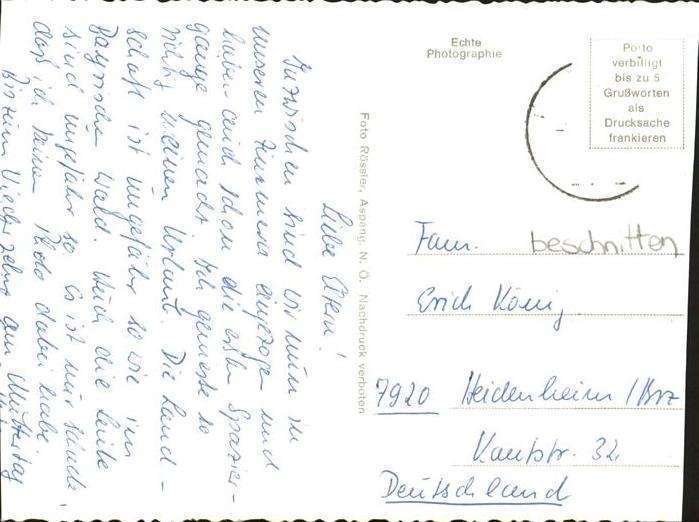 Liebe Eltern!
Inzwischen sind wir nun in
unseren Zimmern eingezogen und
haben auch schon die ersten Spazier-
gänge gemacht. Ich genieße so
richtig meinen Urlaub. Die Land-
schaft ist ungefähr so wie im
Bayrischen Wald. Auch die Leute
sind ungefähr so. Es ist nur schade,
daß ich keinen Foto dabei habe.
Bis zum Wiedersehen am Muttertag
Foto Rössler, Aspang, N. Ö. Nachdruck verboten
Echte
Photographie
Porto
verbilligt
bis zu 5
Grußworten
als
Drucksache
frankieren
beschnitten
Fam.
Erich König
7920 Heidenheim / Brz
Kantstr. 32
Deutschland